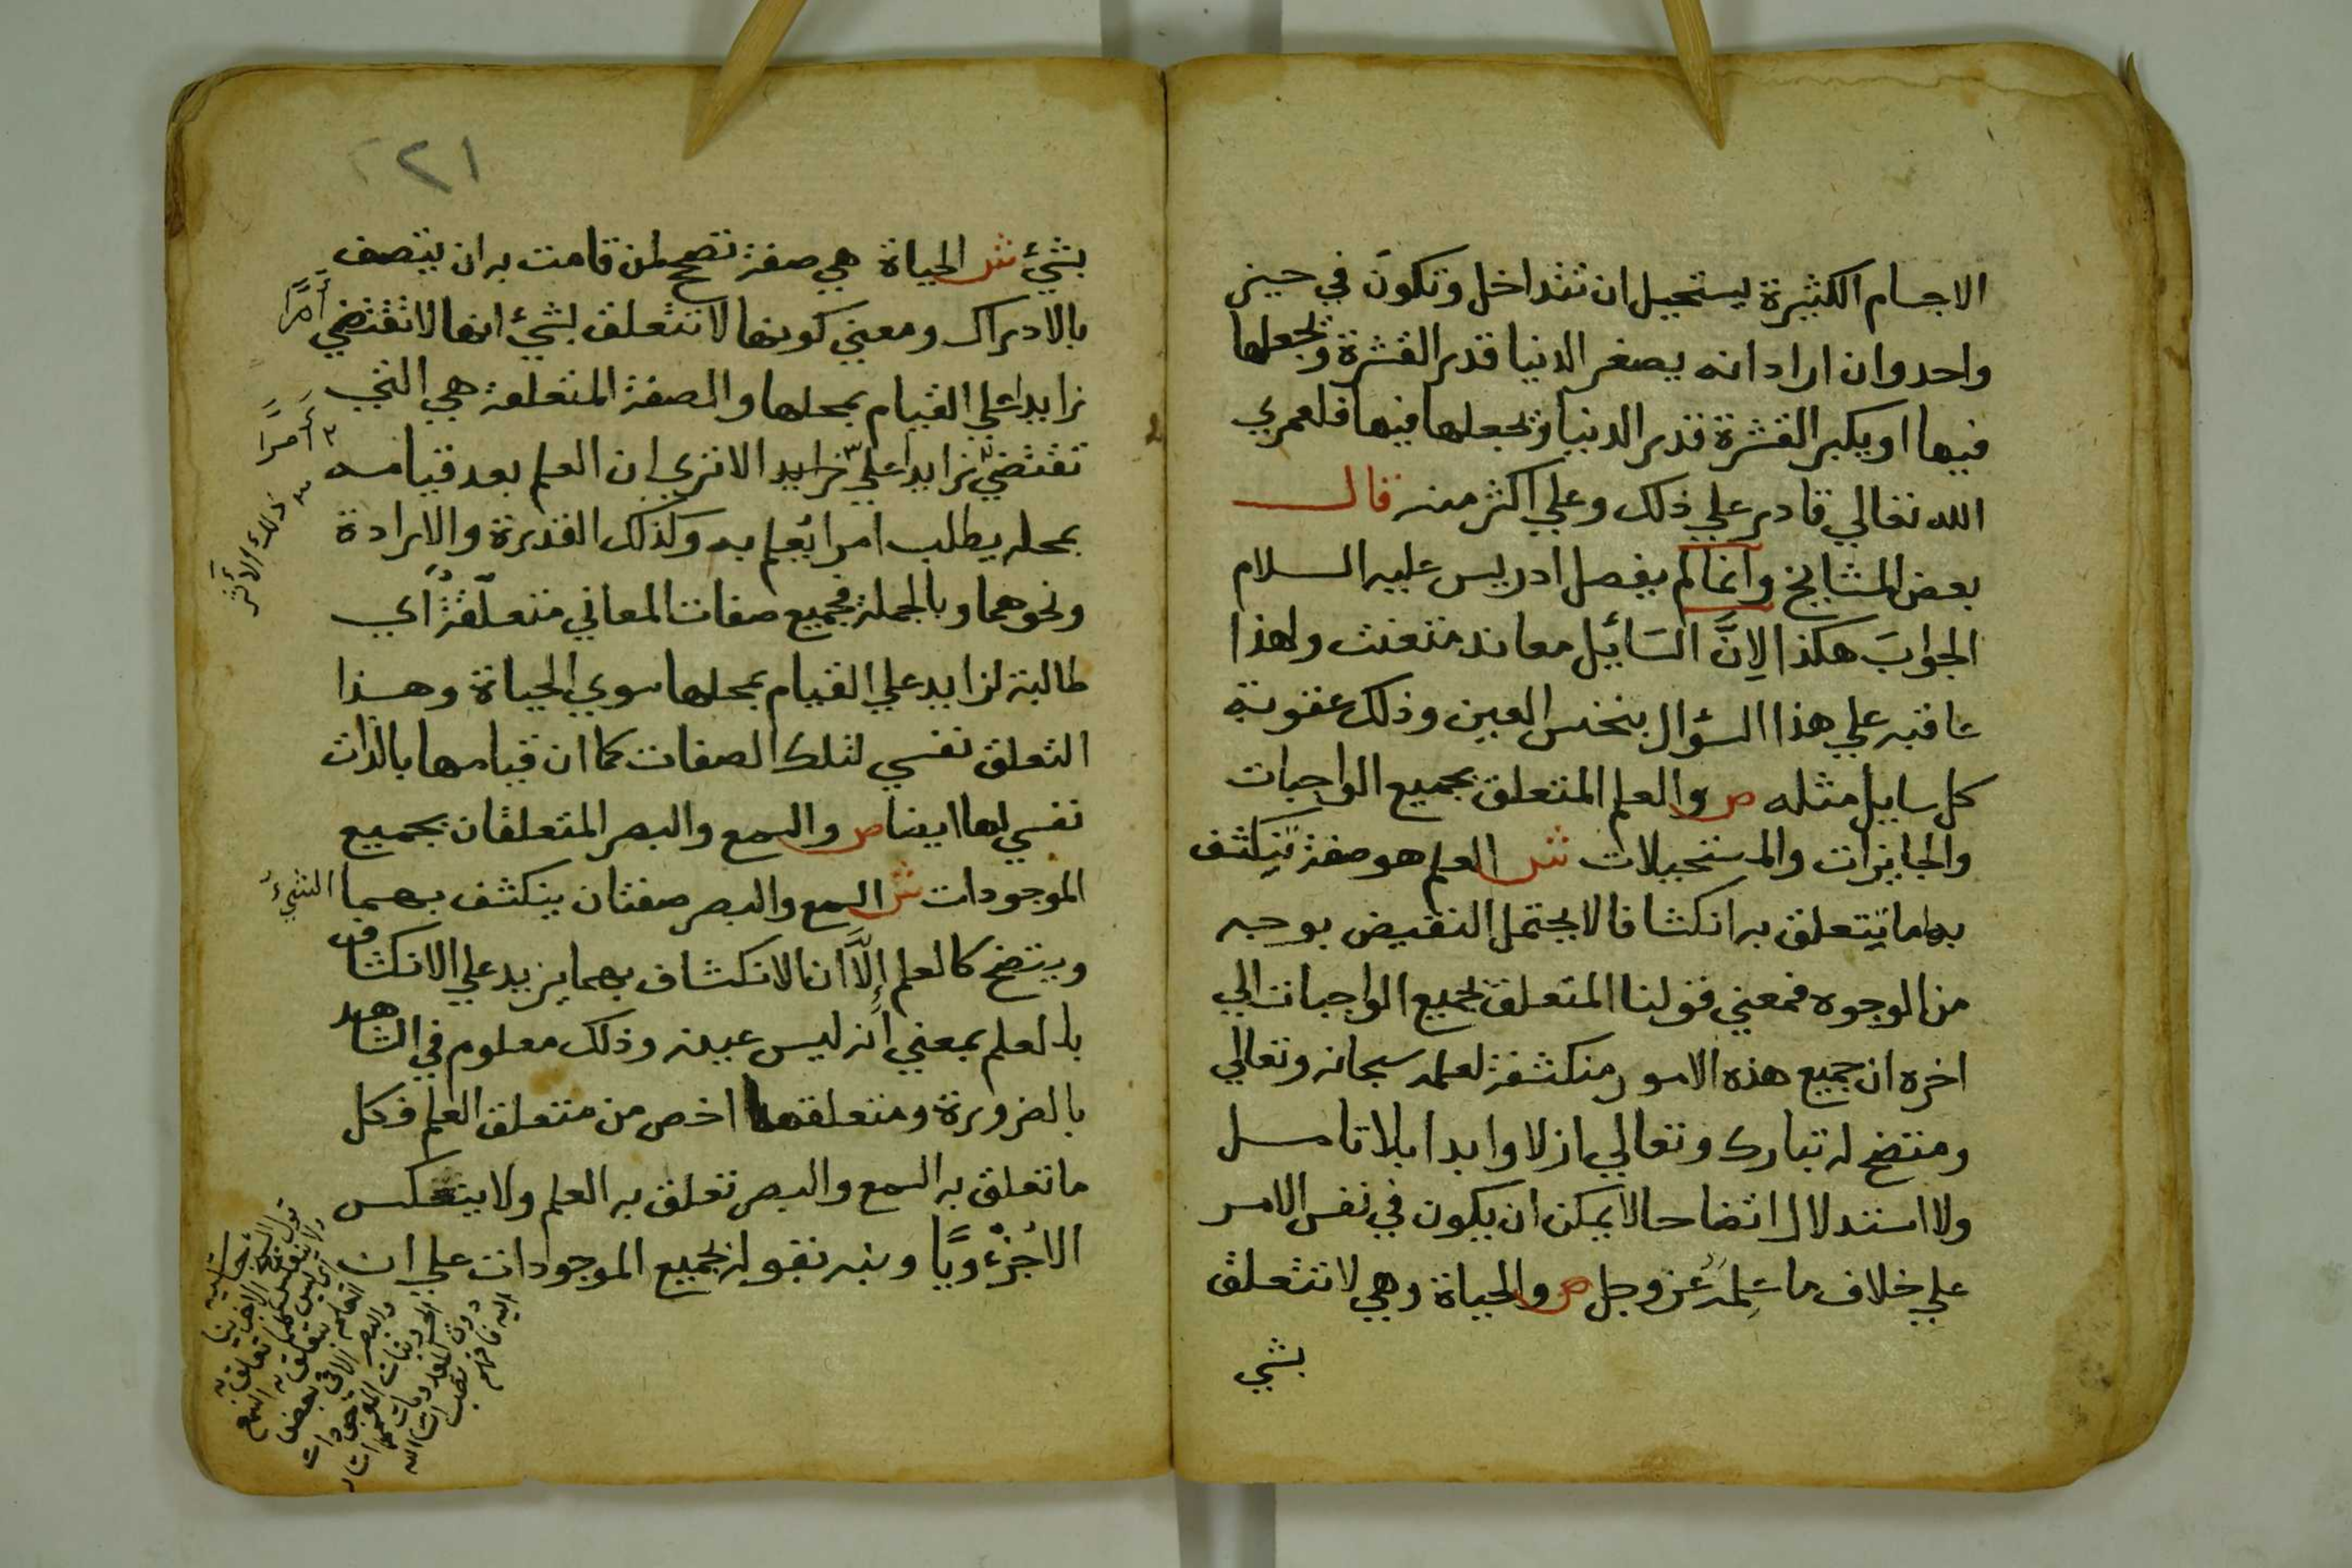 الاجسام الكثيرة يستحيل ان تتداخل وتكون في حيز
واحد وان اراد انه يصغر الدنيا قدر القشرة ويجعلها
فيها او يكبر القشرة قدر الدنيا ويجعلها فيها فلعمري
الله تعالي قادر علي ذلك وعلي اكثر منه قال
بعض المشايخ وانما لم يفصل ادريس عليه السلام
الجوابَ هكذا لِانَّ السَائِل معاند متعنت ولهذا
عاقبه علي هذا السؤال بنخس العين وذلك عقوبة
كل سايل مثله ص والعلم المتعلق بجميع الواجبات
والجايزات والمستحيلات ش العلم هو صفة ينكشف
بها ما يتعلق به انكشافا لا يحتمل النقيض بوجه
من الوجوه فمعني قولنا المتعلق بجميع الواجبات الي
اخره ان جميع هذه الامور منكشفة لعلمه سبحانه وتعالي
ومتضح له تبارك وتعالي ازلا وابدا بلا تامل
ولا استدلال اتضاحا لا يمكن ان يكون في نفس الامر
علي خلاف ما عَلِمَهُ عز وجل ص والحياة وهي لا تتعلق
بشي
٢٢١
بشيء ش الحياة هي صفة تصحح لمن قامت به ان يتصف
بالادراك ومعني كونها لا تتعلق بشيء انها لا تقتضي
أمرًا
زايدا علي القيام بمحلها والصفة المتعلقة هي التي
تقتضي زايدا علي زايد الا تري ان العلم بعد قيامه
أمرًا
ذلك الأثر
بمحله يطلب امرا يُعلم به وكذلك القدرة والارادة
ونحوهما وبالجملة فجميع صفات المعاني متعلّقةٌ أي
طالبة لزايد علي القيام بمحلها سوي الحياة وهذا
التعلق نفسي لتلك الصفات كما ان قيامها بالذات
نفسي لها ايضا ص والسمع والبصر المتعلقان بجميع
الموجودات ش السمع والبصر صفتان ينكشف بهما الشيءُ
ويتضح كالعلم إلَّا ان الانكشاف بهما يزيد علي الانكشاف
بالعلم بمعني انه ليس عينه وذلك معلوم في الشاهد
بالضرورة ومتعلقهما اخص من متعلق العلم فكل
ما تعلق به السمع والبصر تعلق به العلم ولا ينعكس
الا جُزْءويًّا ونبه بقوله بجميع الموجودات علي ان